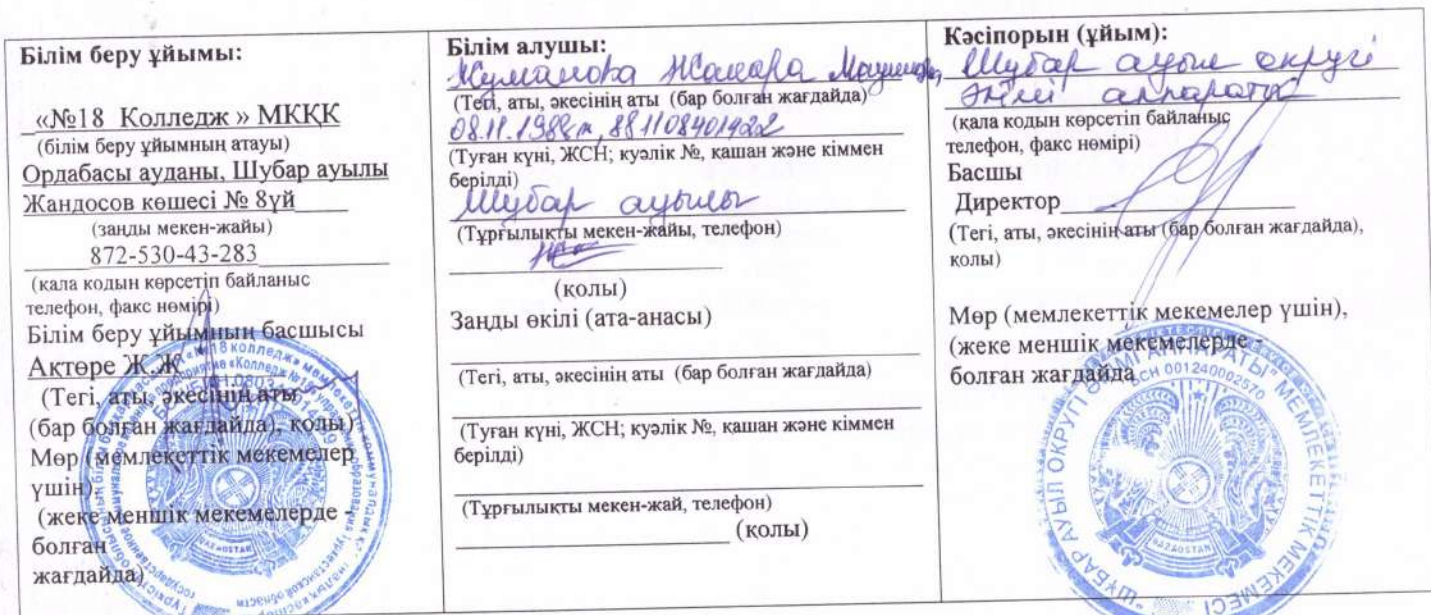 Білім беру ұйымы:
«№18 Колледж » МКҚК
(білім беру ұйымның атауы)
Ордабасы ауданы, Шубар ауылы
Жандосов көшесі № 8үй
(заңды мекен-жайы)
872-530-43-283
(кала кодын көрсетіп байланыс
телефон, факс нөмірі)
Білім беру ұйымның басшысы
Ақтөре Ж.Ж
(Тегі, аты, әкесінің аты
(бар болған жағдайда), қолы)
Мөр (мемлекеттік мекемелер
үшін),
(жеке меншік мекемелерде -
болған
жағдайда)
Білім алушы:
Жуманова Жанара
(Тегі, аты, әкесінің аты (бар болған жағдайда)
08.11.1988ж, 881108401422
(Туған күні, ЖСН; куәлік №, қашан және кіммен
берілді)
Шубар ауылы
(Тұрғылықты мекен-жайы, телефон)
(қолы)
Заңды өкілі (ата-анасы)
(Тегі, аты, әкесінің аты (бар болған жағдайда)
(Туған күні, ЖСН; куәлік №, қашан және кіммен
берілді)
(Тұрғылықты мекен-жай, телефон)
(қолы)
Кәсіпорын (ұйым):
Шубар ауыл округі
әкімі аппараты
(қала кодын көрсетіп байланыс
телефон, факс нөмірі)
Басшы
Директор
(Тегі, аты, әкесінің аты (бар болған жағдайда),
қолы)
Мөр (мемлекеттік мекемелер үшін),
(жеке меншік мекемелерде -
болған жағдайда
ШҰБАР АУЫЛ ОКРУГІ ӘКІМІ АППАРАТЫ" МЕМЛЕКЕТТІК МЕКЕМЕСІ
БСН 001240002570